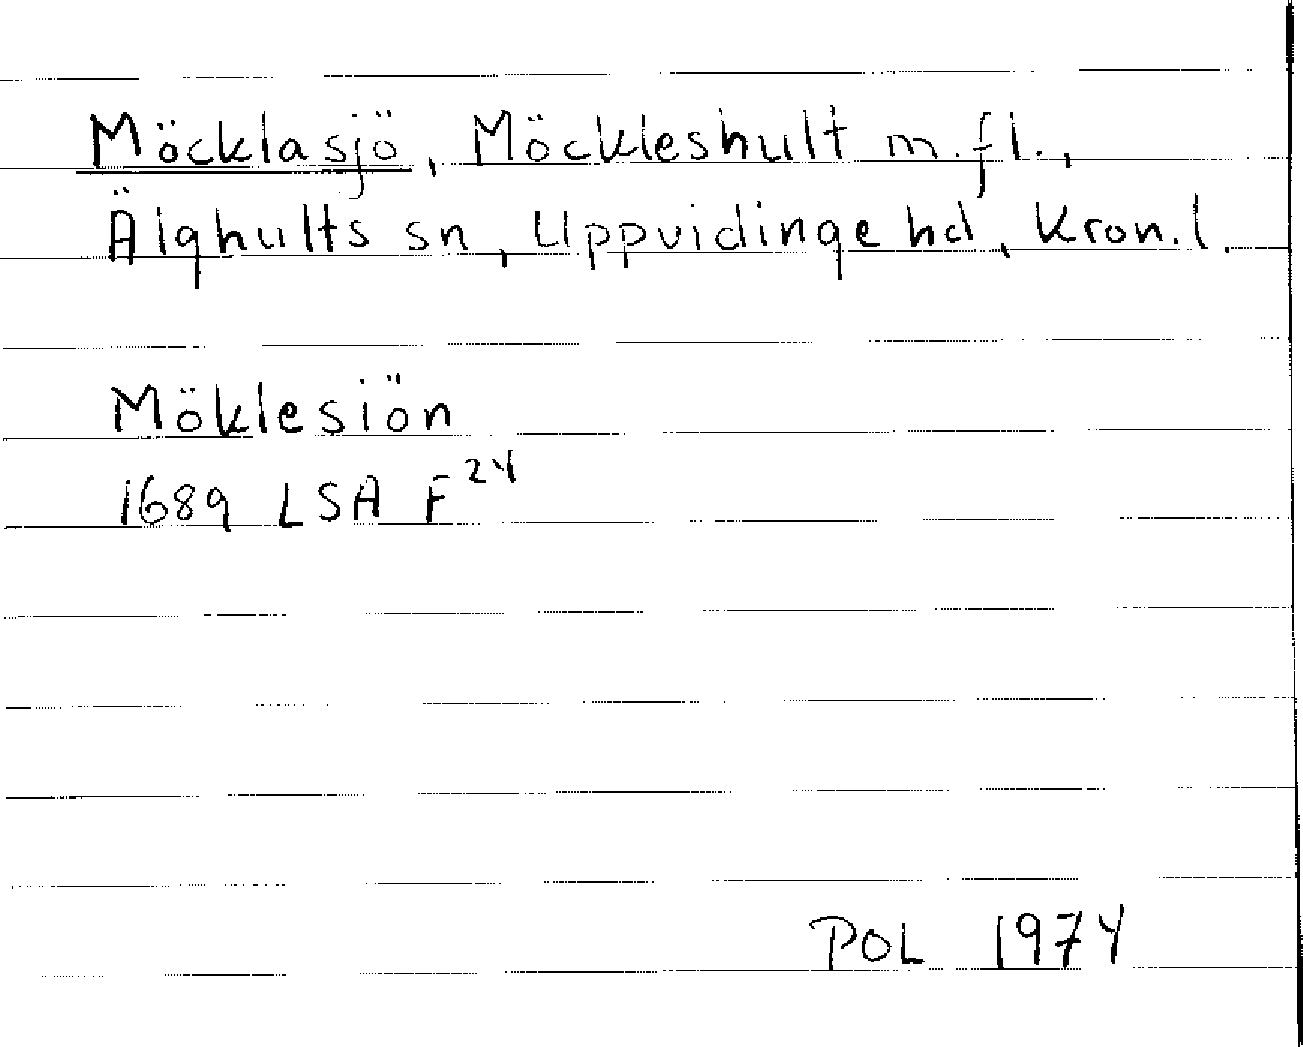 Möcklasjö, Möckleshult m.fl.,
Älghults sn, Uppvidinge hd, Kron.l.
Möklesiön
1689 LSA F24
POL 1974